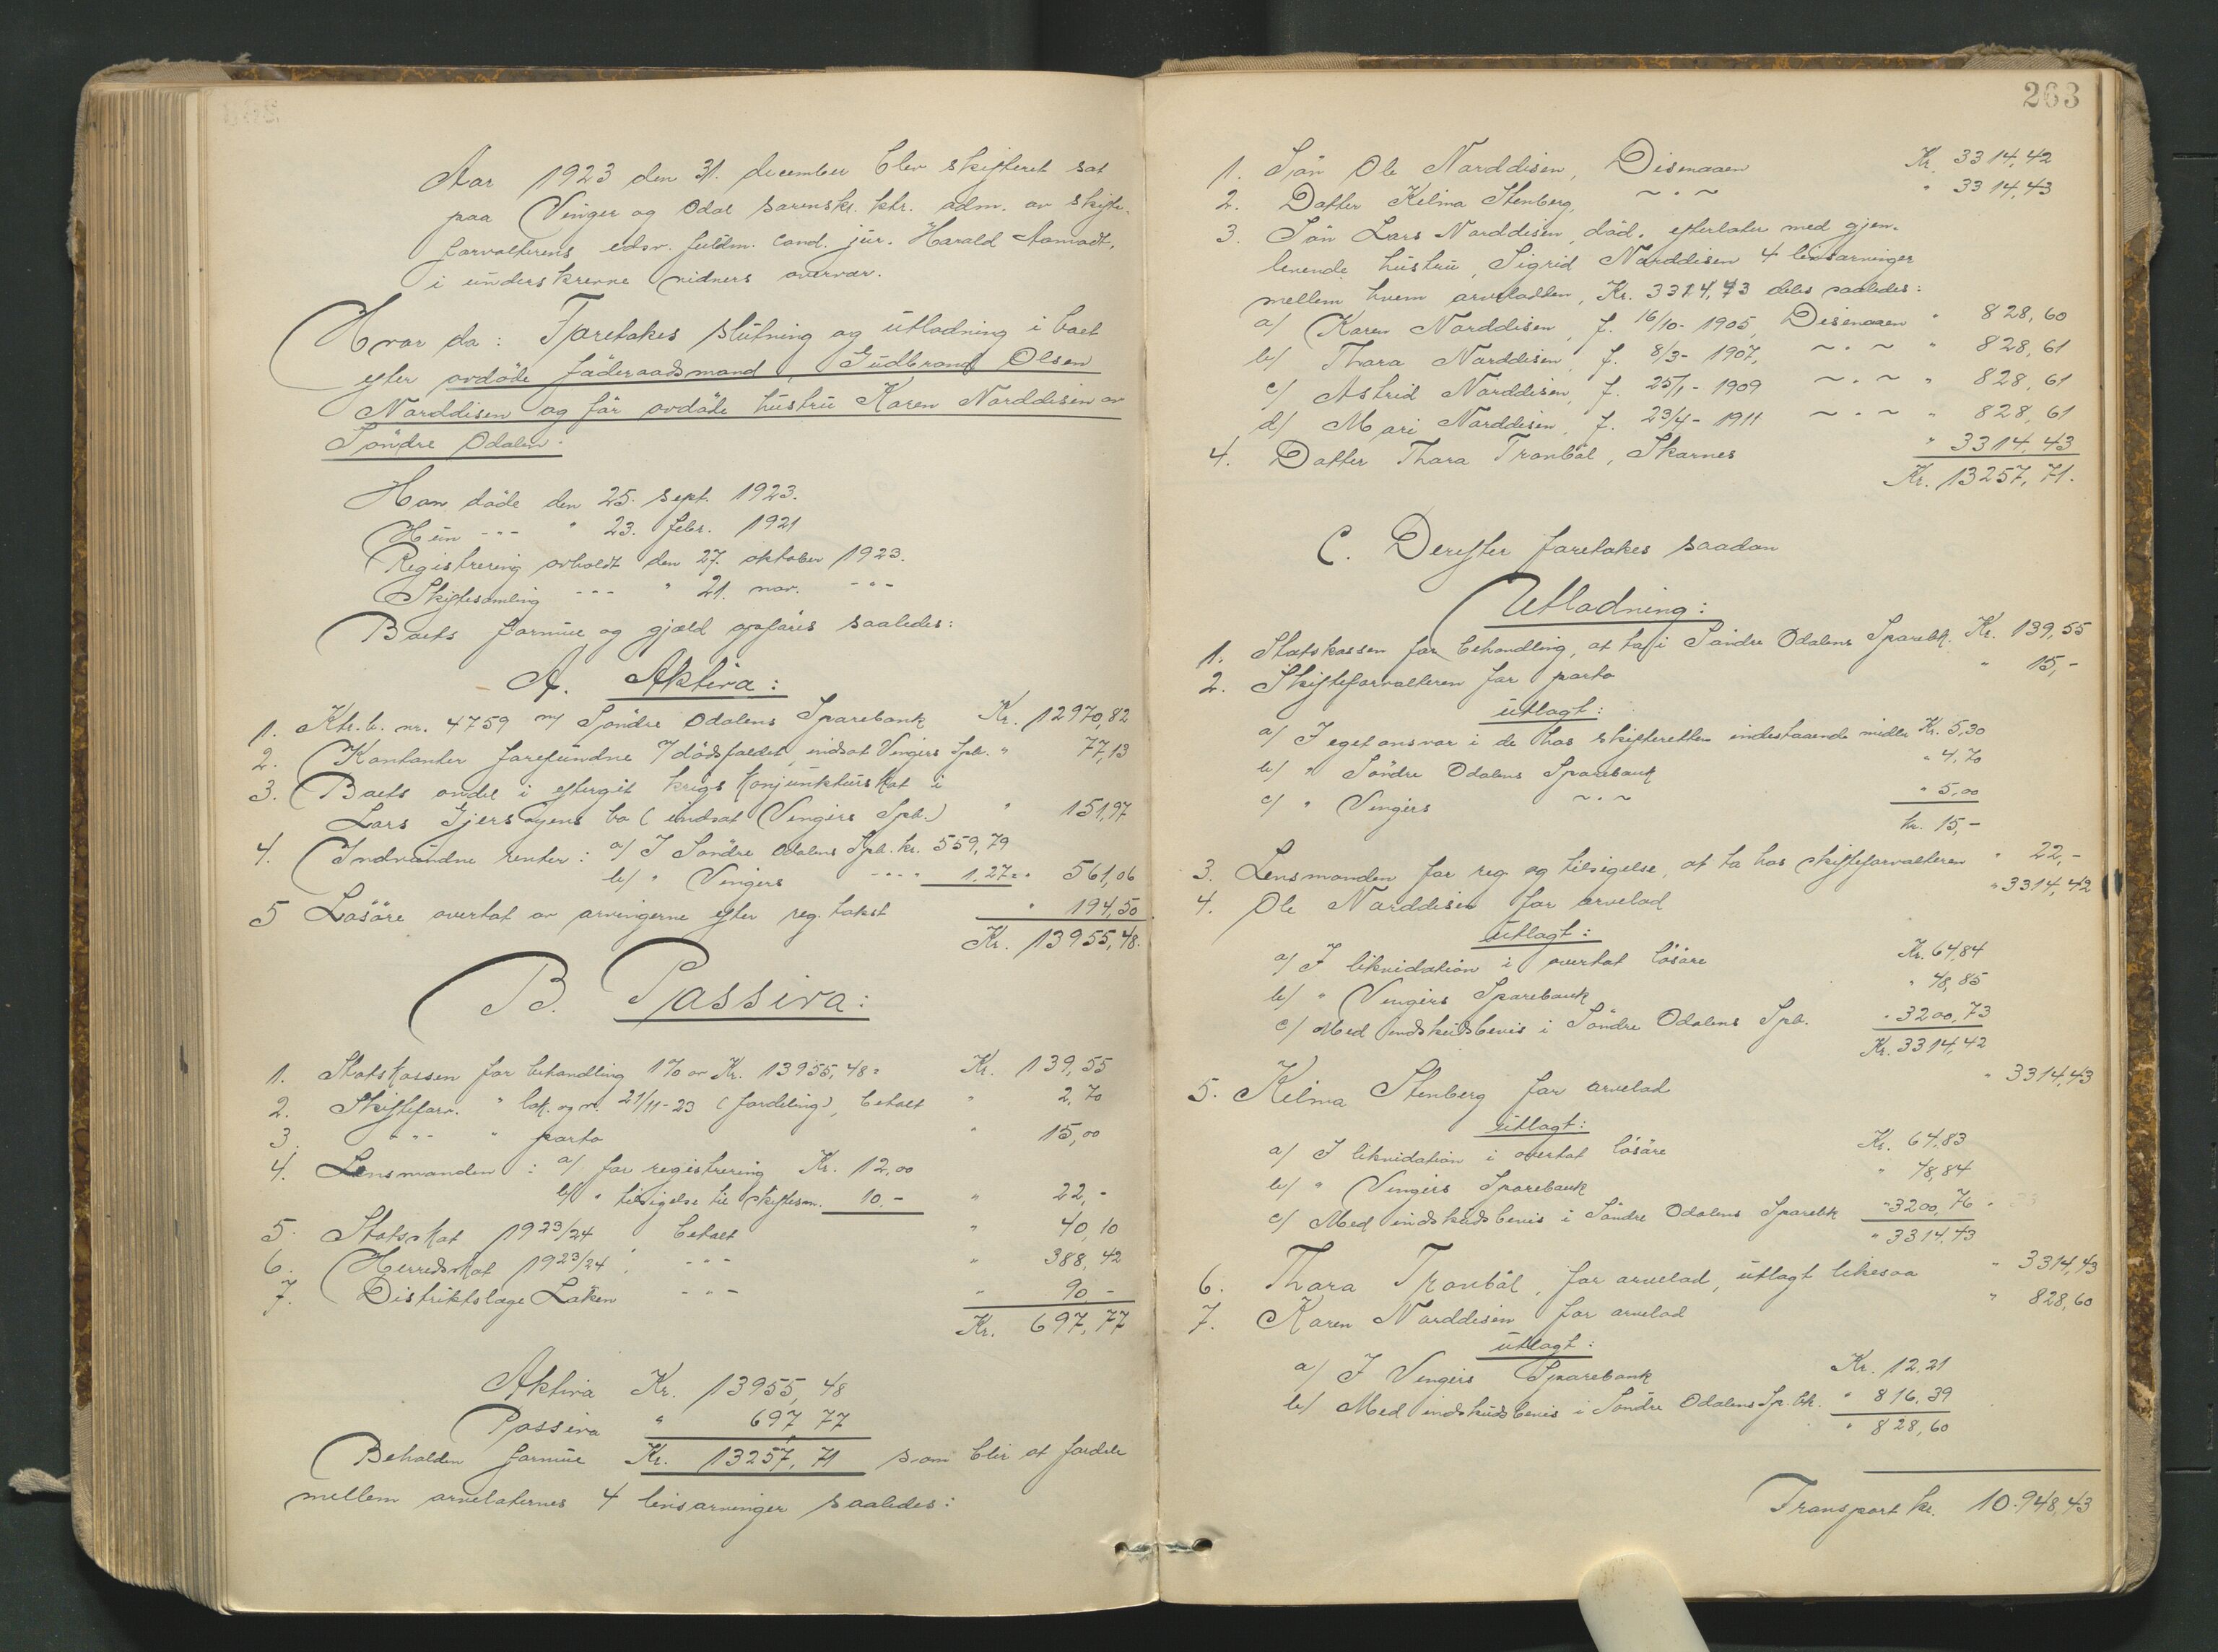 Aar 1923 den 31. december blev skifteret sat
paa Vinger og Odal sorenskr. ktr. adm. av skifte-
forvalterens edsv. fuldm. cand. jur. Harald Aamodt,
i underskrevne vidners overvær.
Hvor da: Foretakes slutning og utlodning i boet
efter avdøde føderaadsmand, Gudbrand Olsen
Norddisen og før avdøde hustru Karen Norddisen av
Søndre Odalen.
Han døde den 25. sept. 1923.
Hun --- " 23. febr. 1921
Registrering avholdt den 27. oktober 1923.
Skiftesamling --- " 21. nov. -"-
Boets formue og gjæld opføres saaledes:
A. Aktiva:
1. Ktr.b. nr. 4759 m/ Søndre Odalens Sparebank Kr. 12970,82
2. Kontanter forefundne v/ dødsfaldet, indsat Vingers Spb. " 77,13
3. Boets andel i eftergit krigskonjunkturskat i
Lars Gjersøyens bo (indsat Vingers Spb.) " 151,97
4. Indvundne renter: a/ I Søndre Odalens Spb. kr. 559,79
b/ " Vingers -"- " 1,27 = " 561,06
5 Løsøre overtat av arvingerne efter reg. takst " 194,50
Kr. 13955,48.
B. Passiva:
1. Statskassen for behandling 1% av Kr. 13955,48 = Kr. 139,55
2. Skifteforv. " 21/11-23 (fordeling), betalt " 2,70
3. -"- " porto " 15,00
4. Lensmanden: a/ for registrering Kr. 12,00
b/ " tilsigelse til skiftesam. 10,- " 22,-
5. Statsskat 1923/24 betalt " 40,10
6. Herredsskat 1923/24, -"- " 388,42
7. Distriktslæge Løken -"- " 90 -
Kr. 697,77
Aktiva Kr. 13955,48
Passiva " 697,77
Beholden formue Kr. 13257,71 som blir at fordele
mellem arvelaternes 4 livsarvinger saaledes:
263
1. Søn Ole Norddisen, Disenaaen Kr. 3314,42
2. Datter Kelma Stenberg, ~"~ " 3314,43
3. Søn Lars Norddisen, død, efterlater med gjen-
levende hustru, Sigrid Norddisen 4 livsarvinger
mellem hvem arvelodden, Kr. 3314,43 deles saaledes:
a/ Karen Norddisen, f. 16/10-1905, Disenaaen " 828,60
b/ Thora Norddisen, f. 8/3-1907, ~"~ " 828,61
c/ Astrid Norddisen, f. 25/1-1909 ~"~ " 828,61
d/ Mari Norddisen, f. 23/4-1911 ~"~ " 828,61
4. Datter Thora Tronbøl, Skarnes " 3314,43
Kr. 13257,71.
C. Derefter foretakes saadan
Utlodning:
1. Statskassen for behandling, at ta i Søndre Odalens Sparebk. Kr. 139,55
2. Skifteforvalteren for porto " 15,-
utlagt:
a/ I eget ansvar i de hos skifteretten indestaaende midler Kr. 5,30
b/ " Søndre Odalens Sparebank " 4,70
c/ " Vingers ~"~ " 5,00
kr. 15,-
3. Lensmanden for reg. og tilsigelse, at ta hos skifteforvalteren " 22,-
4. Ole Norddisen for arvelod " 3314,42
utlagt:
a/ I likvidation i overtat løsøre Kr. 64,84
b/ " Vingers Sparebank " 48,85
c/ Med indskudsbevis i Søndre Odalens Spb. " 3200,73
Kr. 3314,42
5. Kelma Stenberg for arvelod " 3314,43
utlagt:
a/ I likvidation i overtat løsøre Kr. 64,83
b/ " Vingers Sparebank " 48,84
c/ Med indskudsbevis i Søndre Odalens Sparebk " 3200,76
" 3314,43
6. Thora Tronbøl, for arvelod, utlagt likesaa " 3314,43
7. Karen Norddisen for arvelod " 828,60
utlagt:
a/ I Vingers Sparebank Kr. 12,21
b/ Med indskudsbevis i Søndre Odalens Sp.bk. " 816,39
" 828,60
Transport kr. 10.948,43